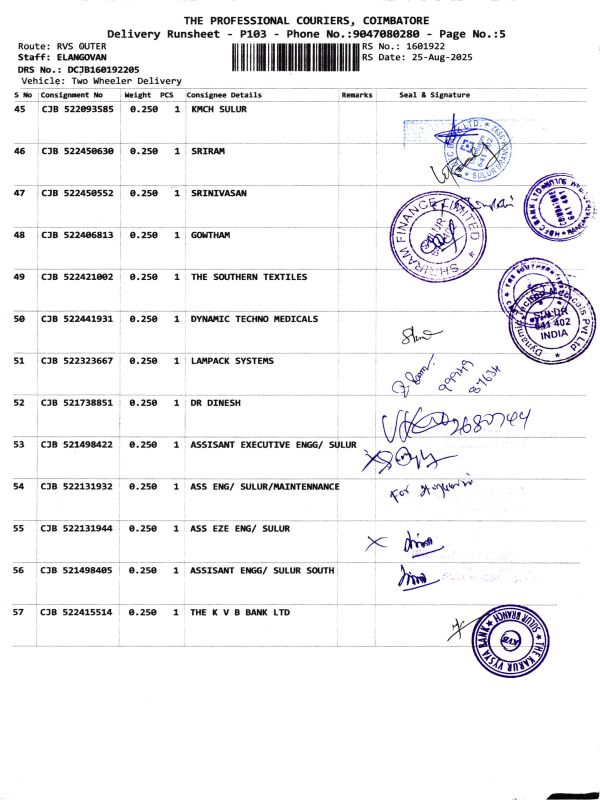 THE PROFESSIONAL COURIERS, COIMBATORE
Delivery Runsheet - P103 - Phone No.:9047080280 - Page No.:5
Route: RVS OUTER RS No.: 1601922
Staff: ELANGOVAN RS Date: 25-Aug-2025
DRS No.: DCJB160192205
Vehicle: Two Wheeler Delivery
S No Consignment No Weight PCS Consignee Details Remarks Seal & Signature
45 CJB 522093585 0.250 1 KMCH SULUR
46 CJB 522450630 0.250 1 SRIRAM
47 CJB 522450552 0.250 1 SRINIVASAN
48 CJB 522406813 0.250 1 GOWTHAM
SHRIRAM FINANCE LIMITED
SULUR
49 CJB 522421002 0.250 1 THE SOUTHERN TEXTILES
50 CJB 522441931 0.250 1 DYNAMIC TECHNO MEDICALS
Dynamic Techno Medicals Pvt Ltd
SULUR
641 402
INDIA
51 CJB 522323667 0.250 1 LAMPACK SYSTEMS
52 CJB 521738851 0.250 1 DR DINESH
53 CJB 521498422 0.250 1 ASSISANT EXECUTIVE ENGG/ SULUR
54 CJB 522131932 0.250 1 ASS ENG/ SULUR/MAINTENNANCE
For
55 CJB 522131944 0.250 1 ASS EZE ENG/ SULUR
56 CJB 521498405 0.250 1 ASSISANT ENGG/ SULUR SOUTH
57 CJB 522415514 0.250 1 THE K V B BANK LTD
THE KARUR VYSYA BANK
SULUR BRANCH
KVB